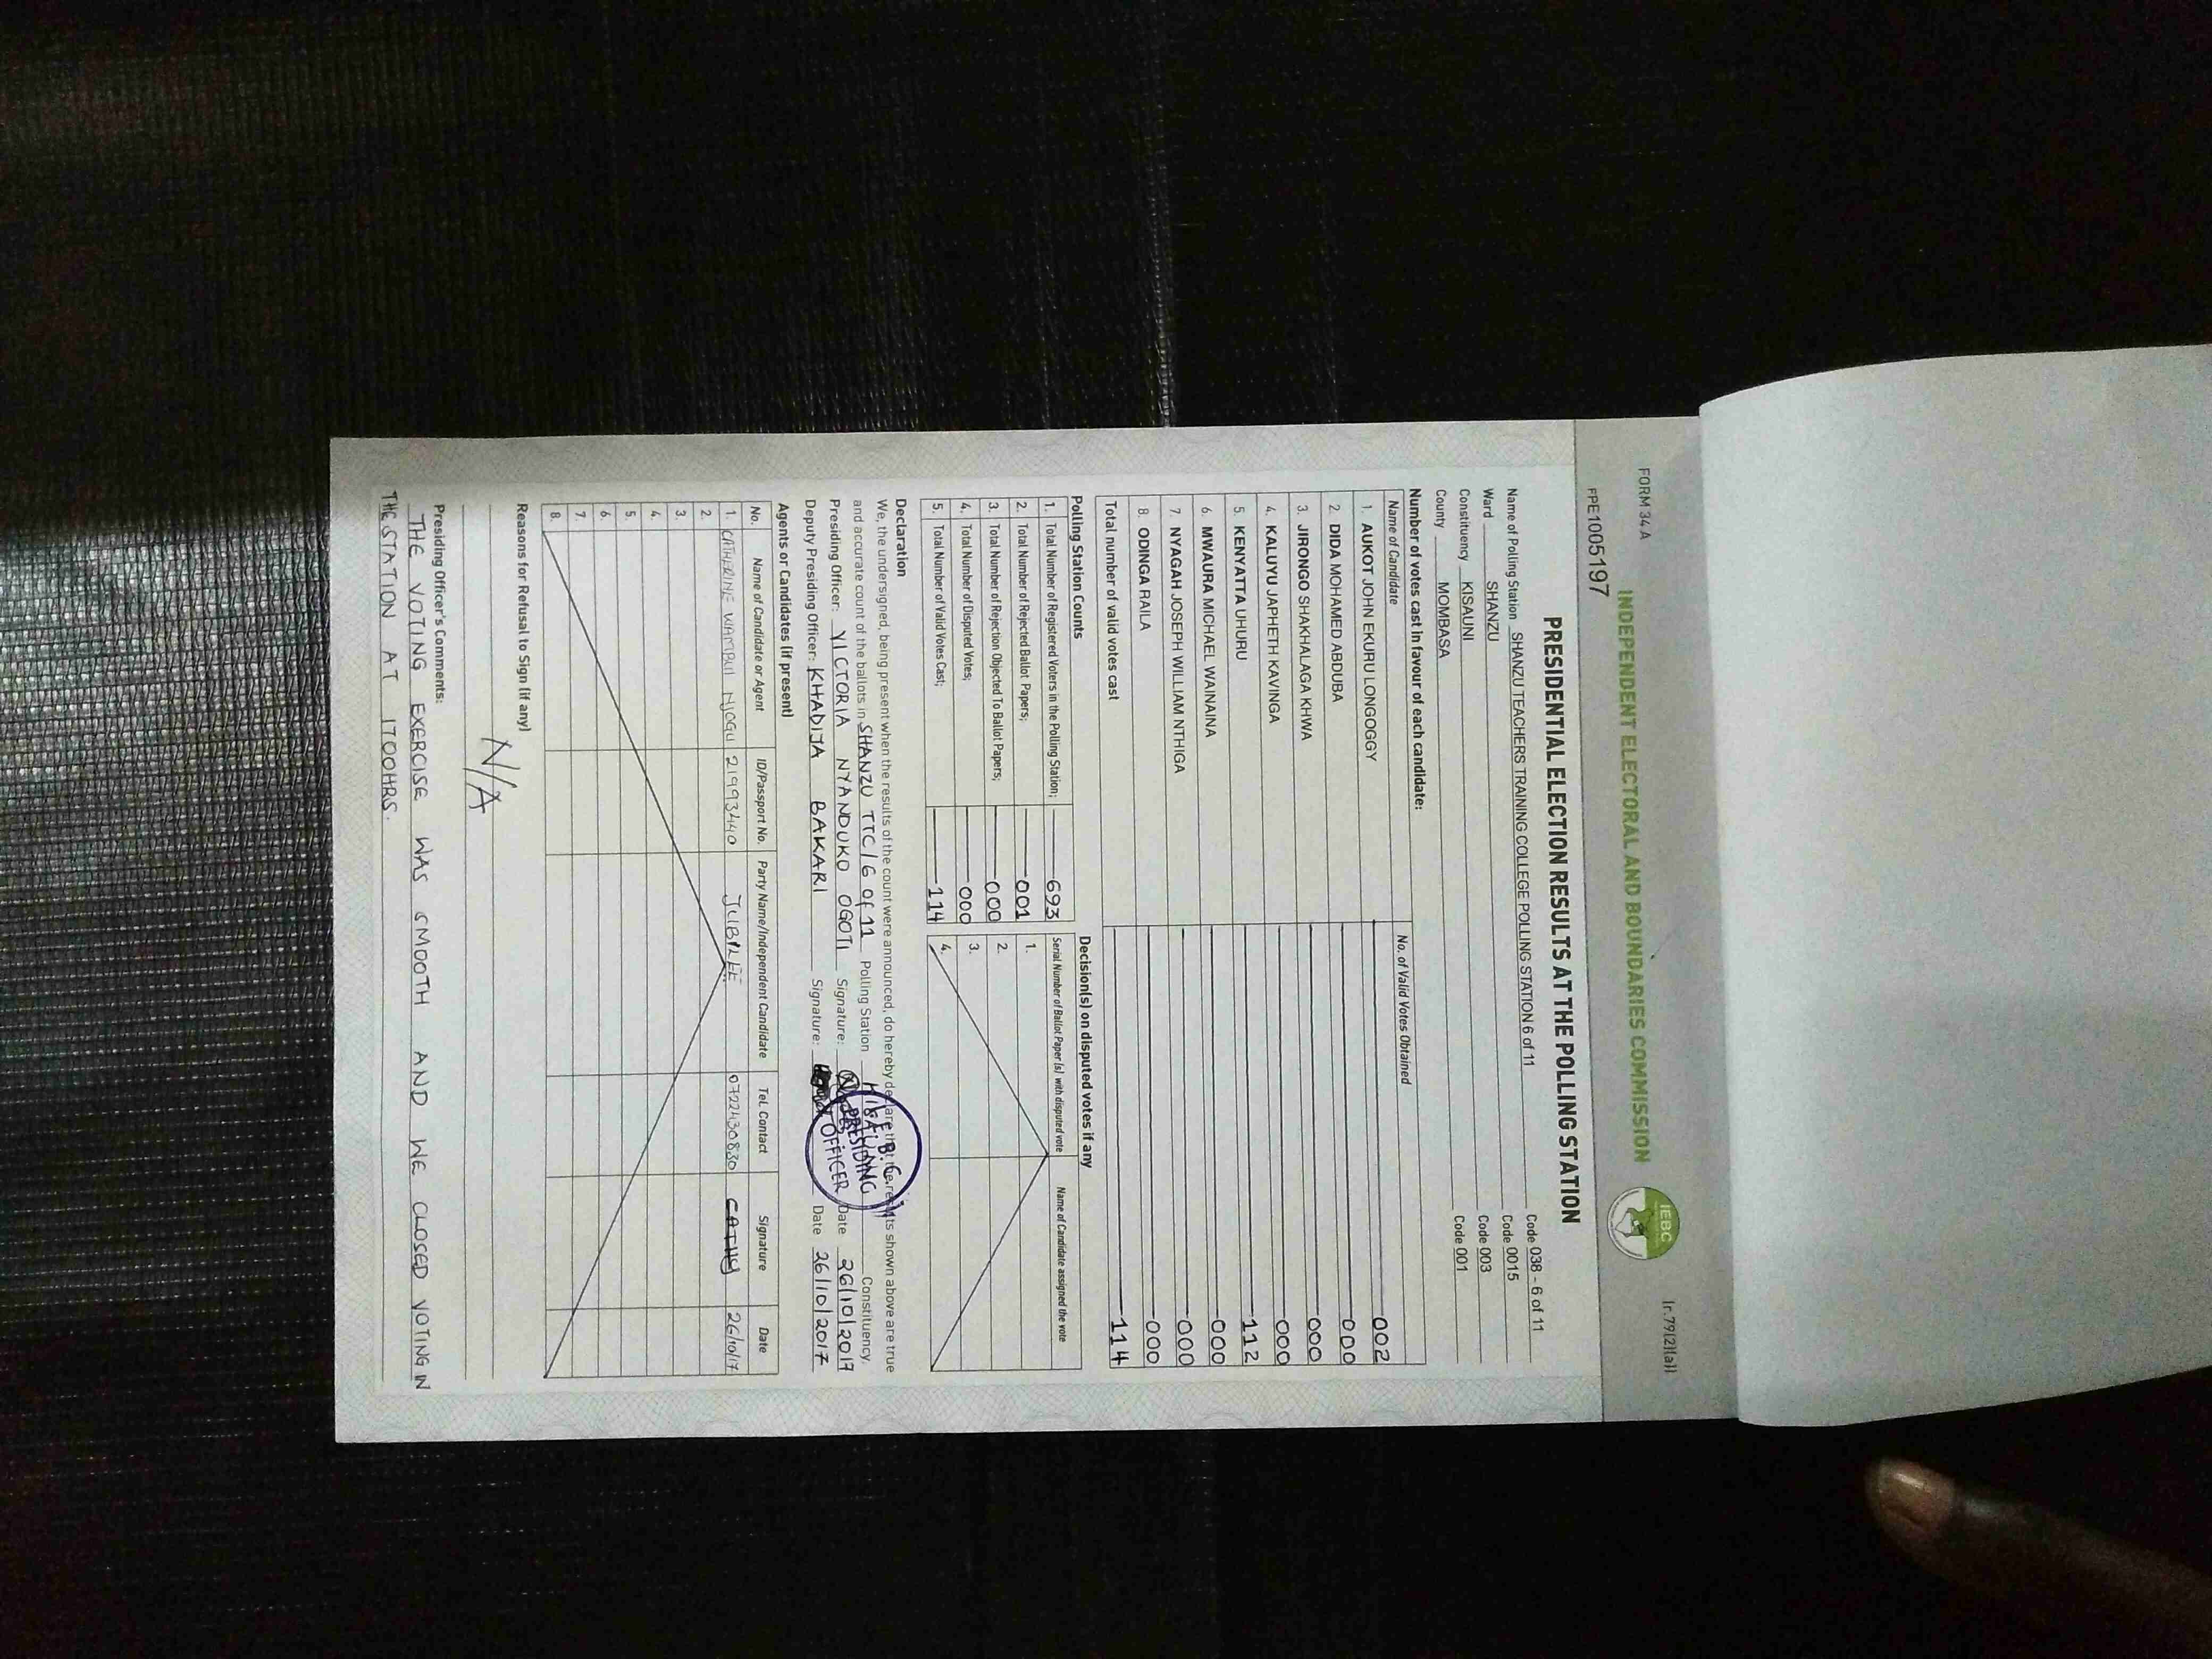 FORM 34 A
Ir.79(2)(a))
INDEPENDENT ELECTORAL AND BOUNDARIES COMMISSION
IEBC
FPE1005197
PRESIDENTIAL ELECTION RESULTS AT THE POLLING STATION
Name of Polling Station SHANZU TEACHERS TRAINING COLLEGE POLLING STATION 6 of 11 Code 038 - 6 of 11
Ward SHANZU Code 0015
Constituency KISAUNI Code 003
County MOMBASA Code 001
Number of votes cast in favour of each candidate:
Name of Candidate No. of Valid Votes Obtained
1. AUKOT JOHN EKURU LONGOGGY 002
2. DIDA MOHAMED ABDUBA 000
3. JIRONGO SHAKHALAGA KHWA 000
4. KALUYU JAPHETH KAVINGA 000
5. KENYATTA UHURU 112
6. MWAURA MICHAEL WAINAINA 000
7. NYAGAH JOSEPH WILLIAM NTHIGA 000
8. ODINGA RAILA 000
Total number of valid votes cast 114
Polling Station Counts
1. Total Number of Registered Voters in the Polling Station; 693
2. Total Number of Rejected Ballot Papers; 001
3. Total Number of Rejection Objected To Ballot Papers; 000
4. Total Number of Disputed Votes; 000
5. Total Number of Valid Votes Cast; 114
Decision(s) on disputed votes if any
Serial Number of Ballot Paper (s) with disputed vote Name of Candidate assigned the vote
1.
2.
3.
4.
Declaration
We, the undersigned, being present when the results of the count were announced, do hereby declare that the results shown above are true
and accurate count of the ballots in SHANZU TTC/6 of 11 Polling Station KISAUNI Constituency.
Presiding Officer: VICTORIA NYANDUKO OGOTI Signature: Date 26/10/2017
Deputy Presiding Officer: KHADIJA BAKARI Signature: Date 26/10/2017
I.E.B.C.
PRESIDING
OFFICER
Agents or Candidates (if present)
No. Name of Candidate or Agent ID/Passport No. Party Name/Independent Candidate Tel. Contact Signature Date
1. CATHERINE WAMBUI NJOGU 21993440 JUBILEE 0722430830 CATHY 26/10/17
2.
3.
4.
5.
6.
7.
8.
Reasons for Refusal to Sign (if any)
N/A
Presiding Officer's Comments:
THE VOTING EXERCISE WAS SMOOTH AND WE CLOSED VOTING IN
THE STATION AT 1700HRS.